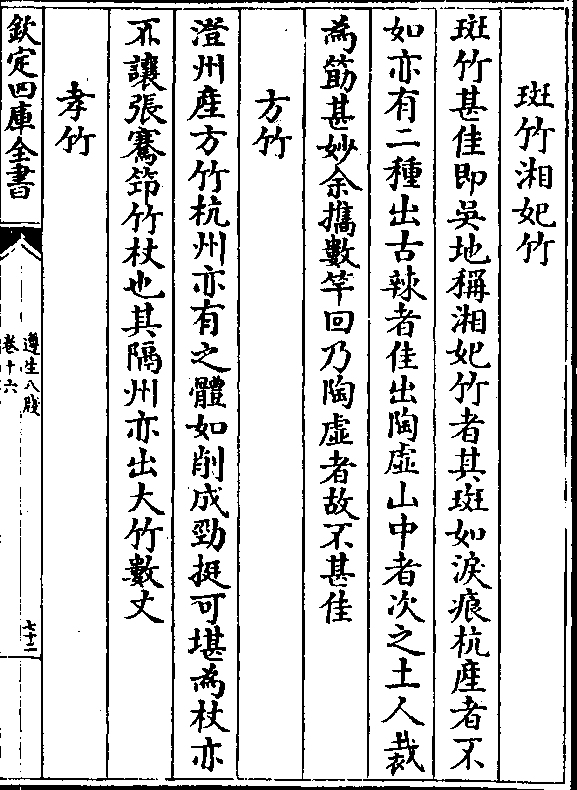 斑竹湘妃竹
斑竹甚佳即吳地稱湘妃竹者其斑如淚痕杭産者不
如亦有二種出古辣者佳出陶虛山中者次之土人裁
為筯甚妙余攜數竿回乃陶虛者故不甚佳
方竹
澄州産方竹杭州亦有之體如削成勁挺可堪為杖亦
不讓張騫筇竹杖也其隔州亦出大竹數丈
孝竹
欽定四庫全書
遵生八牋
卷十六
七十二